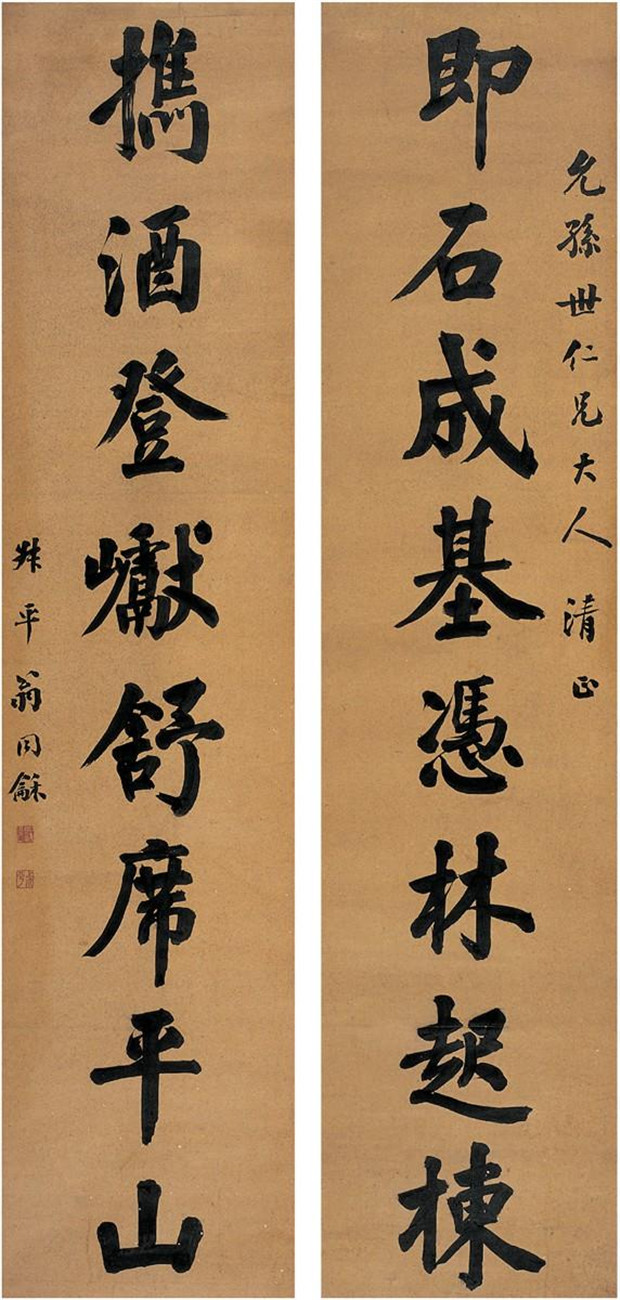 允孫世仁兄大人清正
即石成基憑林起棟
擕酒登巘舒席平山
叔平翁同龢